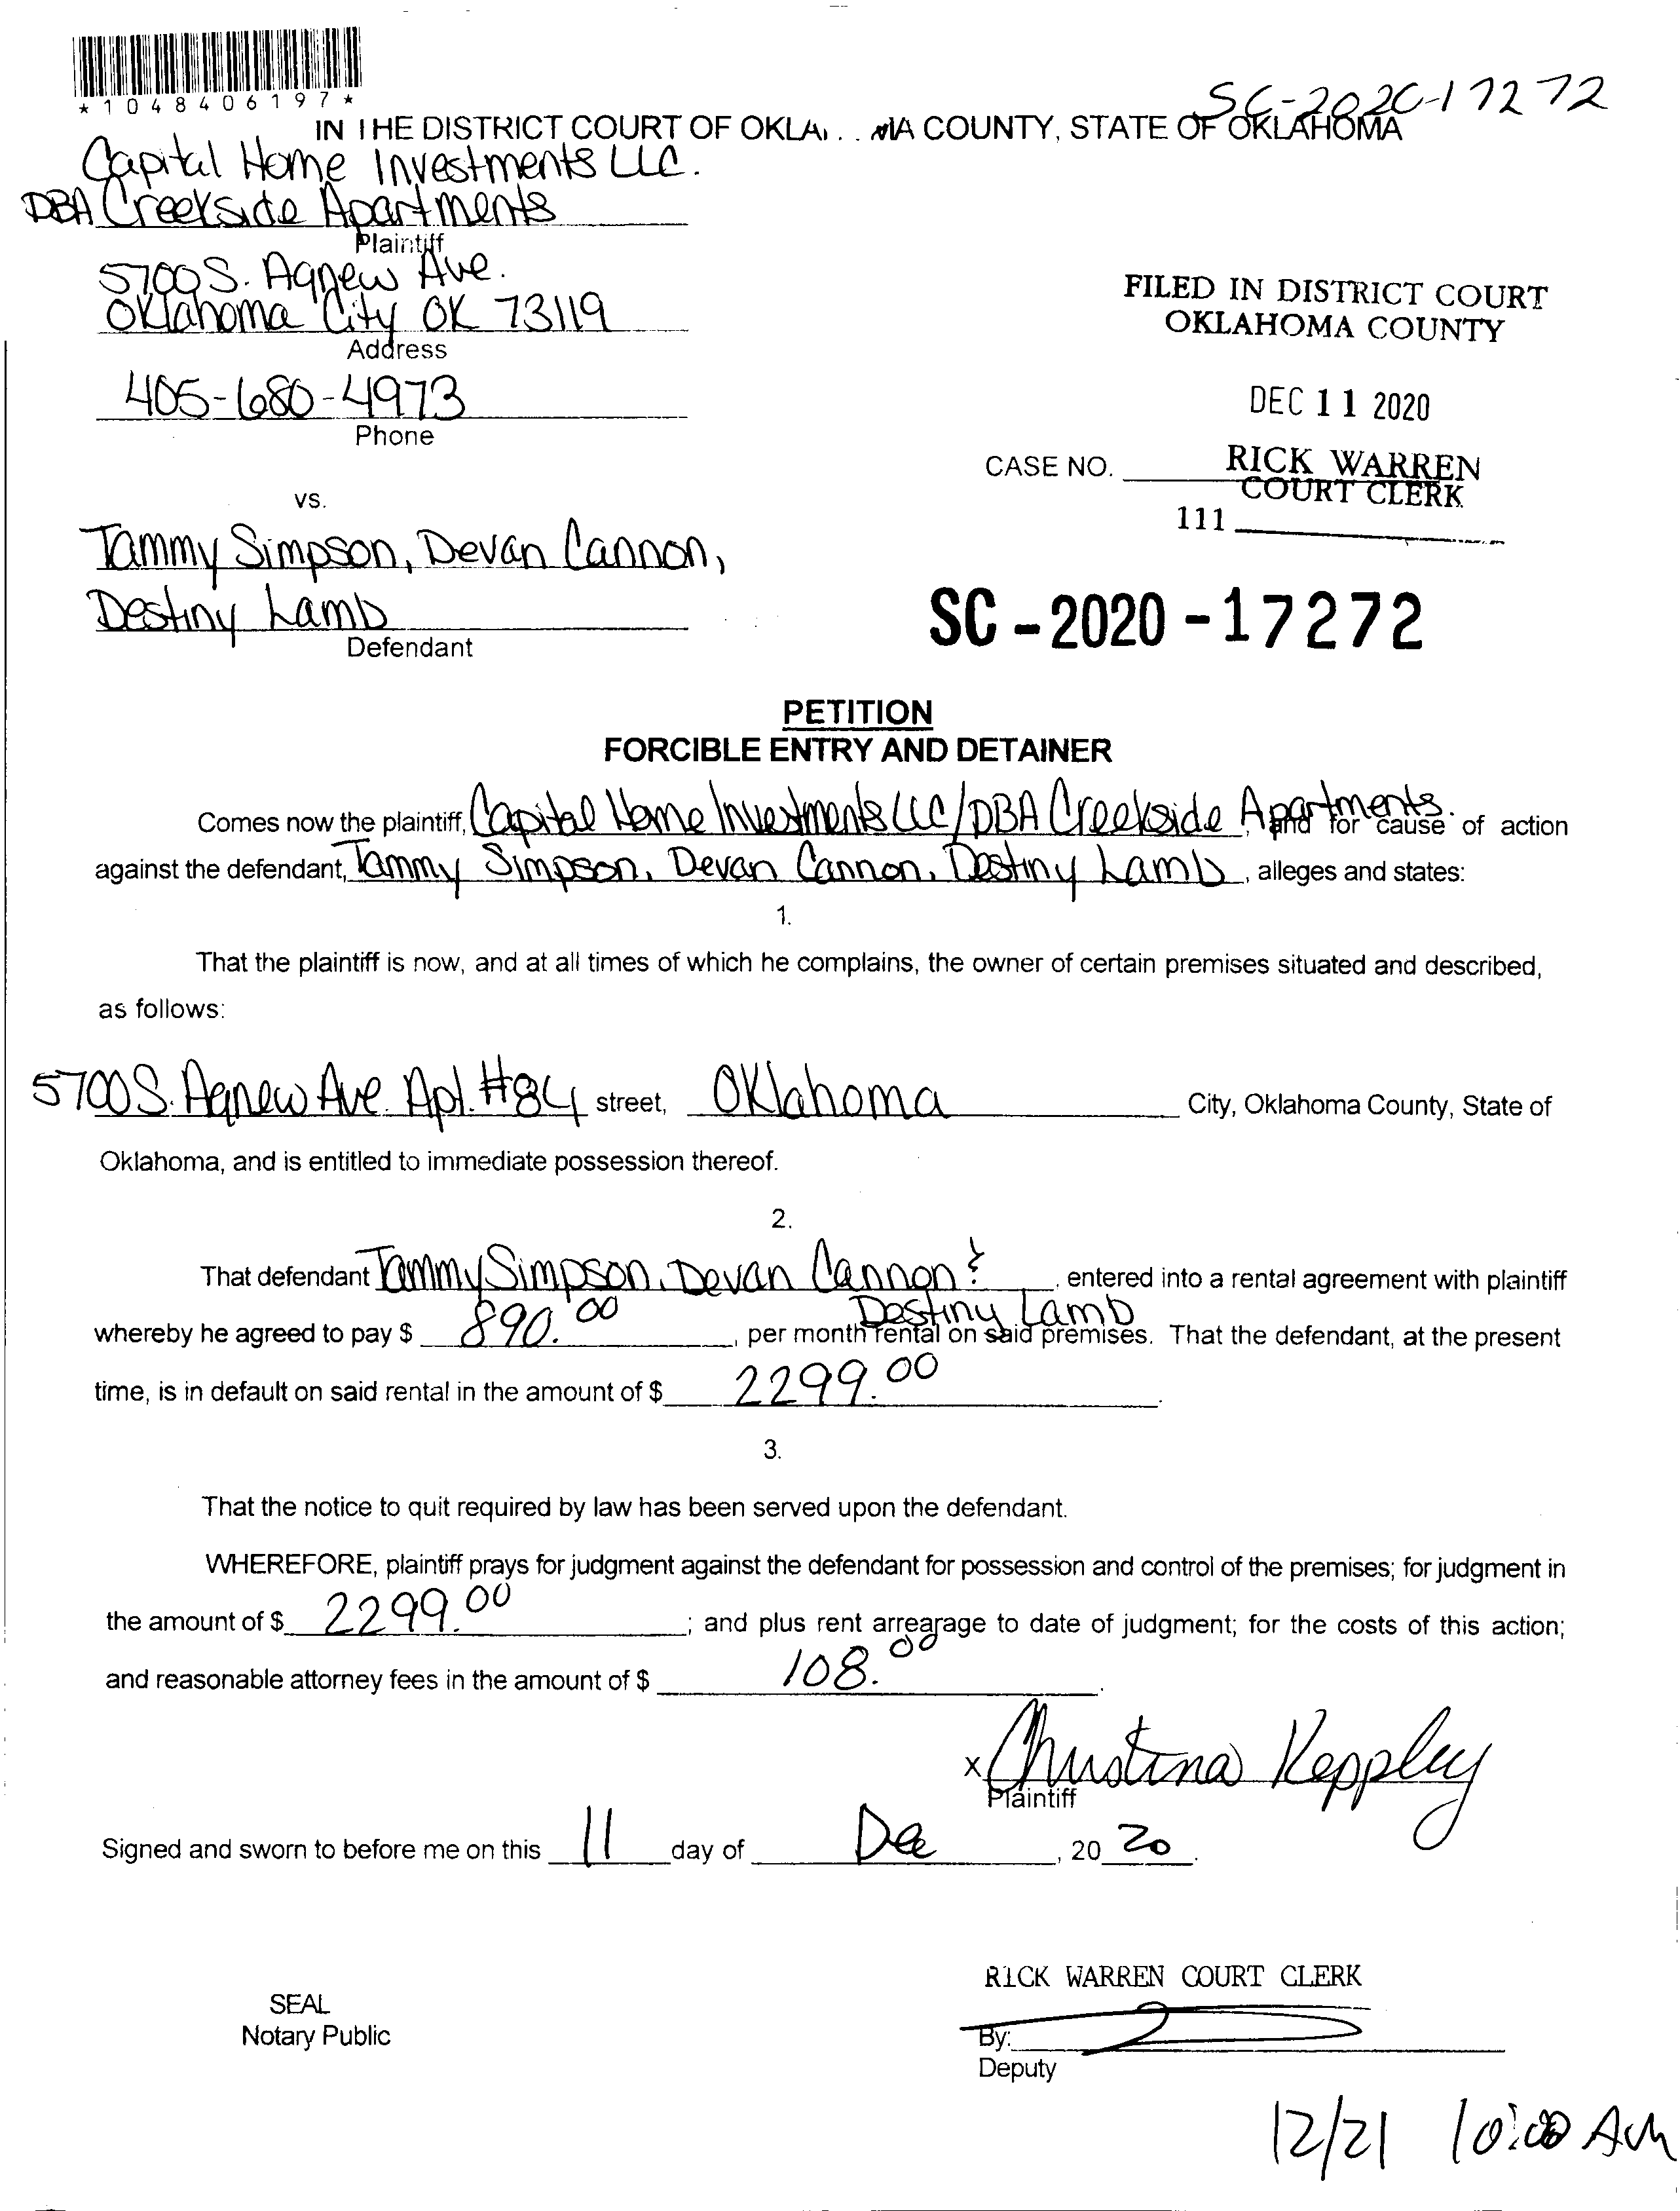 *1048406197*
SC-2020-17272
IN THE DISTRICT COURT OF OKLA... MA COUNTY, STATE OF OKLAHOMA
Capital Home Investments LLC.
DBA Creekside Apartments
Plaintiff
5700 S. Agnew Ave.
Oklahoma City OK 73119
Address
405-680-4973
Phone
FILED IN DISTRICT COURT
OKLAHOMA COUNTY
DEC 11 2020
RICK WARREN
COURT CLERK
CASE NO.
111
vs.
Tammy Simpson, Devan Cannon,
Destiny Lamb
Defendant
SC-2020-17272
PETITION
FORCIBLE ENTRY AND DETAINER
Comes now the plaintiff, Capital Home Investments LLC/DBA Creekside Apartments., and for cause of action
against the defendant, Tammy Simpson, Devan Cannon, Destiny Lamb, alleges and states:
1.
That the plaintiff is now, and at all times of which he complains, the owner of certain premises situated and described,
as follows:
5700 S. Agnew Ave. Apt. #84 street, Oklahoma City, Oklahoma County, State of
Oklahoma, and is entitled to immediate possession thereof.
2.
That defendant Tammy Simpson, Devan Cannon & , entered into a rental agreement with plaintiff
Destiny Lamb
whereby he agreed to pay $ 890.00, per month rental on said premises. That the defendant, at the present
time, is in default on said rental in the amount of $ 2299.00.
3.
That the notice to quit required by law has been served upon the defendant.
WHEREFORE, plaintiff prays for judgment against the defendant for possession and control of the premises; for judgment in
the amount of $ 2299.00; and plus rent arrearage to date of judgment; for the costs of this action;
and reasonable attorney fees in the amount of $ 108.00.
x Christina Keppley
Plaintiff
Signed and sworn to before me on this 11 day of Dec, 20 20.
RICK WARREN COURT CLERK
SEAL
Notary Public
By:
Deputy
12/21 10:00 AM